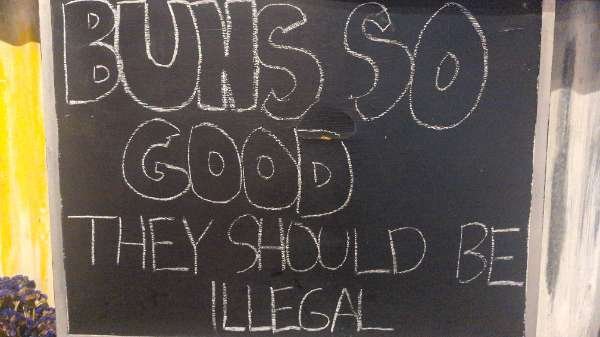 BUNS SO
GOOD
THEY SHOULD BE
ILLEGAL